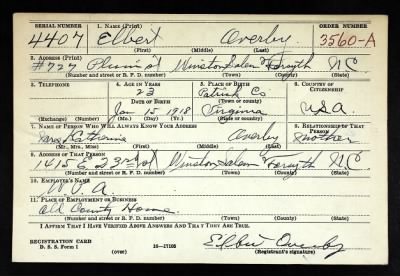 SERIAL NUMBER 1. NAME (Print) ORDER NUMBER
4407 Elbert Overby 3560-A
(First) (Middle) (Last)
2. ADDRESS (Print)
#727 St Winston Salem Forsyth N.C.
(Number and street or R. F. D. number) (Town) (County) (State)
3. TELEPHONE 4. AGE IN YEARS 5. PLACE OF BIRTH 6. COUNTRY OF CITIZENSHIP
22 Patrick Co.
DATE OF BIRTH
Jan 15 1918 Virginia U.S.A.
(Exchange) (Number) (Mo.) (Day) (Yr.) (State or country)
7. NAME OF PERSON WHO WILL ALWAYS KNOW YOUR ADDRESS 8. RELATIONSHIP OF THAT PERSON
Mrs Catherine Overby Mother
(Mr., Mrs., Miss) (First) (Middle) (Last)
9. ADDRESS OF THAT PERSON
1415 E 23rd St Winston Salem Forsyth N.C.
(Number and street or R. F. D. number) (Town) (County) (State)
10. EMPLOYER'S NAME
W. P. A.
11. PLACE OF EMPLOYMENT OR BUSINESS
Old County Home
(Number and street or R. F. D. number) (Town) (County) (State)
I AFFIRM THAT I HAVE VERIFIED ABOVE ANSWERS AND THAT THEY ARE TRUE.
REGISTRATION CARD
D. S. S. Form 1 (over) 16—17105 Overby
(Registrant's signature)